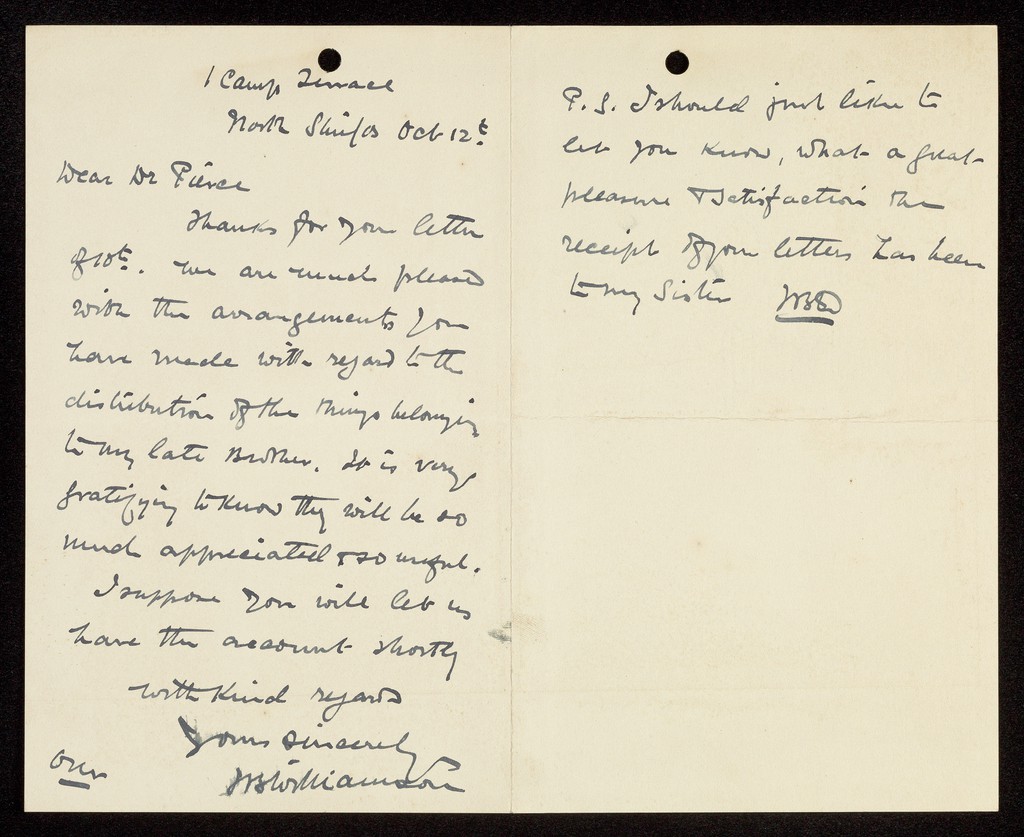 1 Camp Terrace
North Shields Oct 12th
Dear Dr Pierce
Thanks for your letter
of 10th. we are much pleased
with the arrangements you
have made with regard to the
distribution of the things belonging
to my late Brother. It is very
gratifying to know they will be so
much appreciated & so useful.
I suppose you will let us
have the account shortly
with kind regards
Yours sincerely
Williamson
over
P.S. I should just like to
let you know, what a great
pleasure & satisfaction the
receipt of your letters has been
to my Sister